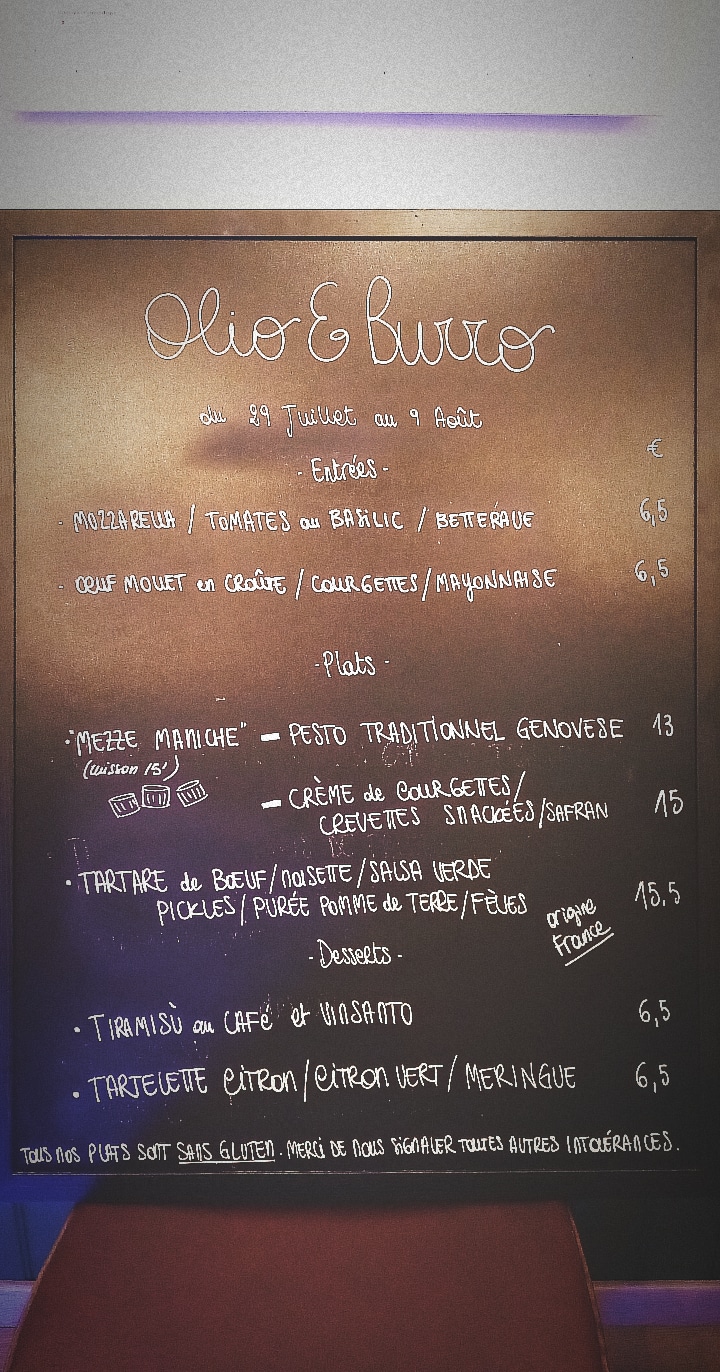 Olio & Burro
du 29 Juillet au 9 Août
€
- Entrées -
- MOZZARELLA / TOMATES au BASILIC / BETTERAVE 6,5
- ŒUF MOLLET en CROÛTE / COURGETTES / MAYONNAISE 6,5
- Plats -
• "MEZZE MANICHE" — PESTO TRADITIONNEL GENOVESE 13
(cuisson 15')
— CRÈME de COURGETTES /
CREVETTES SNACKÉES / SAFRAN 15
• TARTARE de BŒUF / noISETTE / SALSA VERDE
PICKLES / PURÉE POMME de TERRE / FÈVES 15,5
origine
France
- Desserts -
• TIRAMISÙ au CAFé et VINSANTO 6,5
• TARTELETTE CITRON / CITRON VERT / MERINGUE 6,5
TOUS NOS PLATS SONT SANS GLUTEN. MERCI DE NOUS SIGNALER TOUTES AUTRES INTOLÉRANCES.